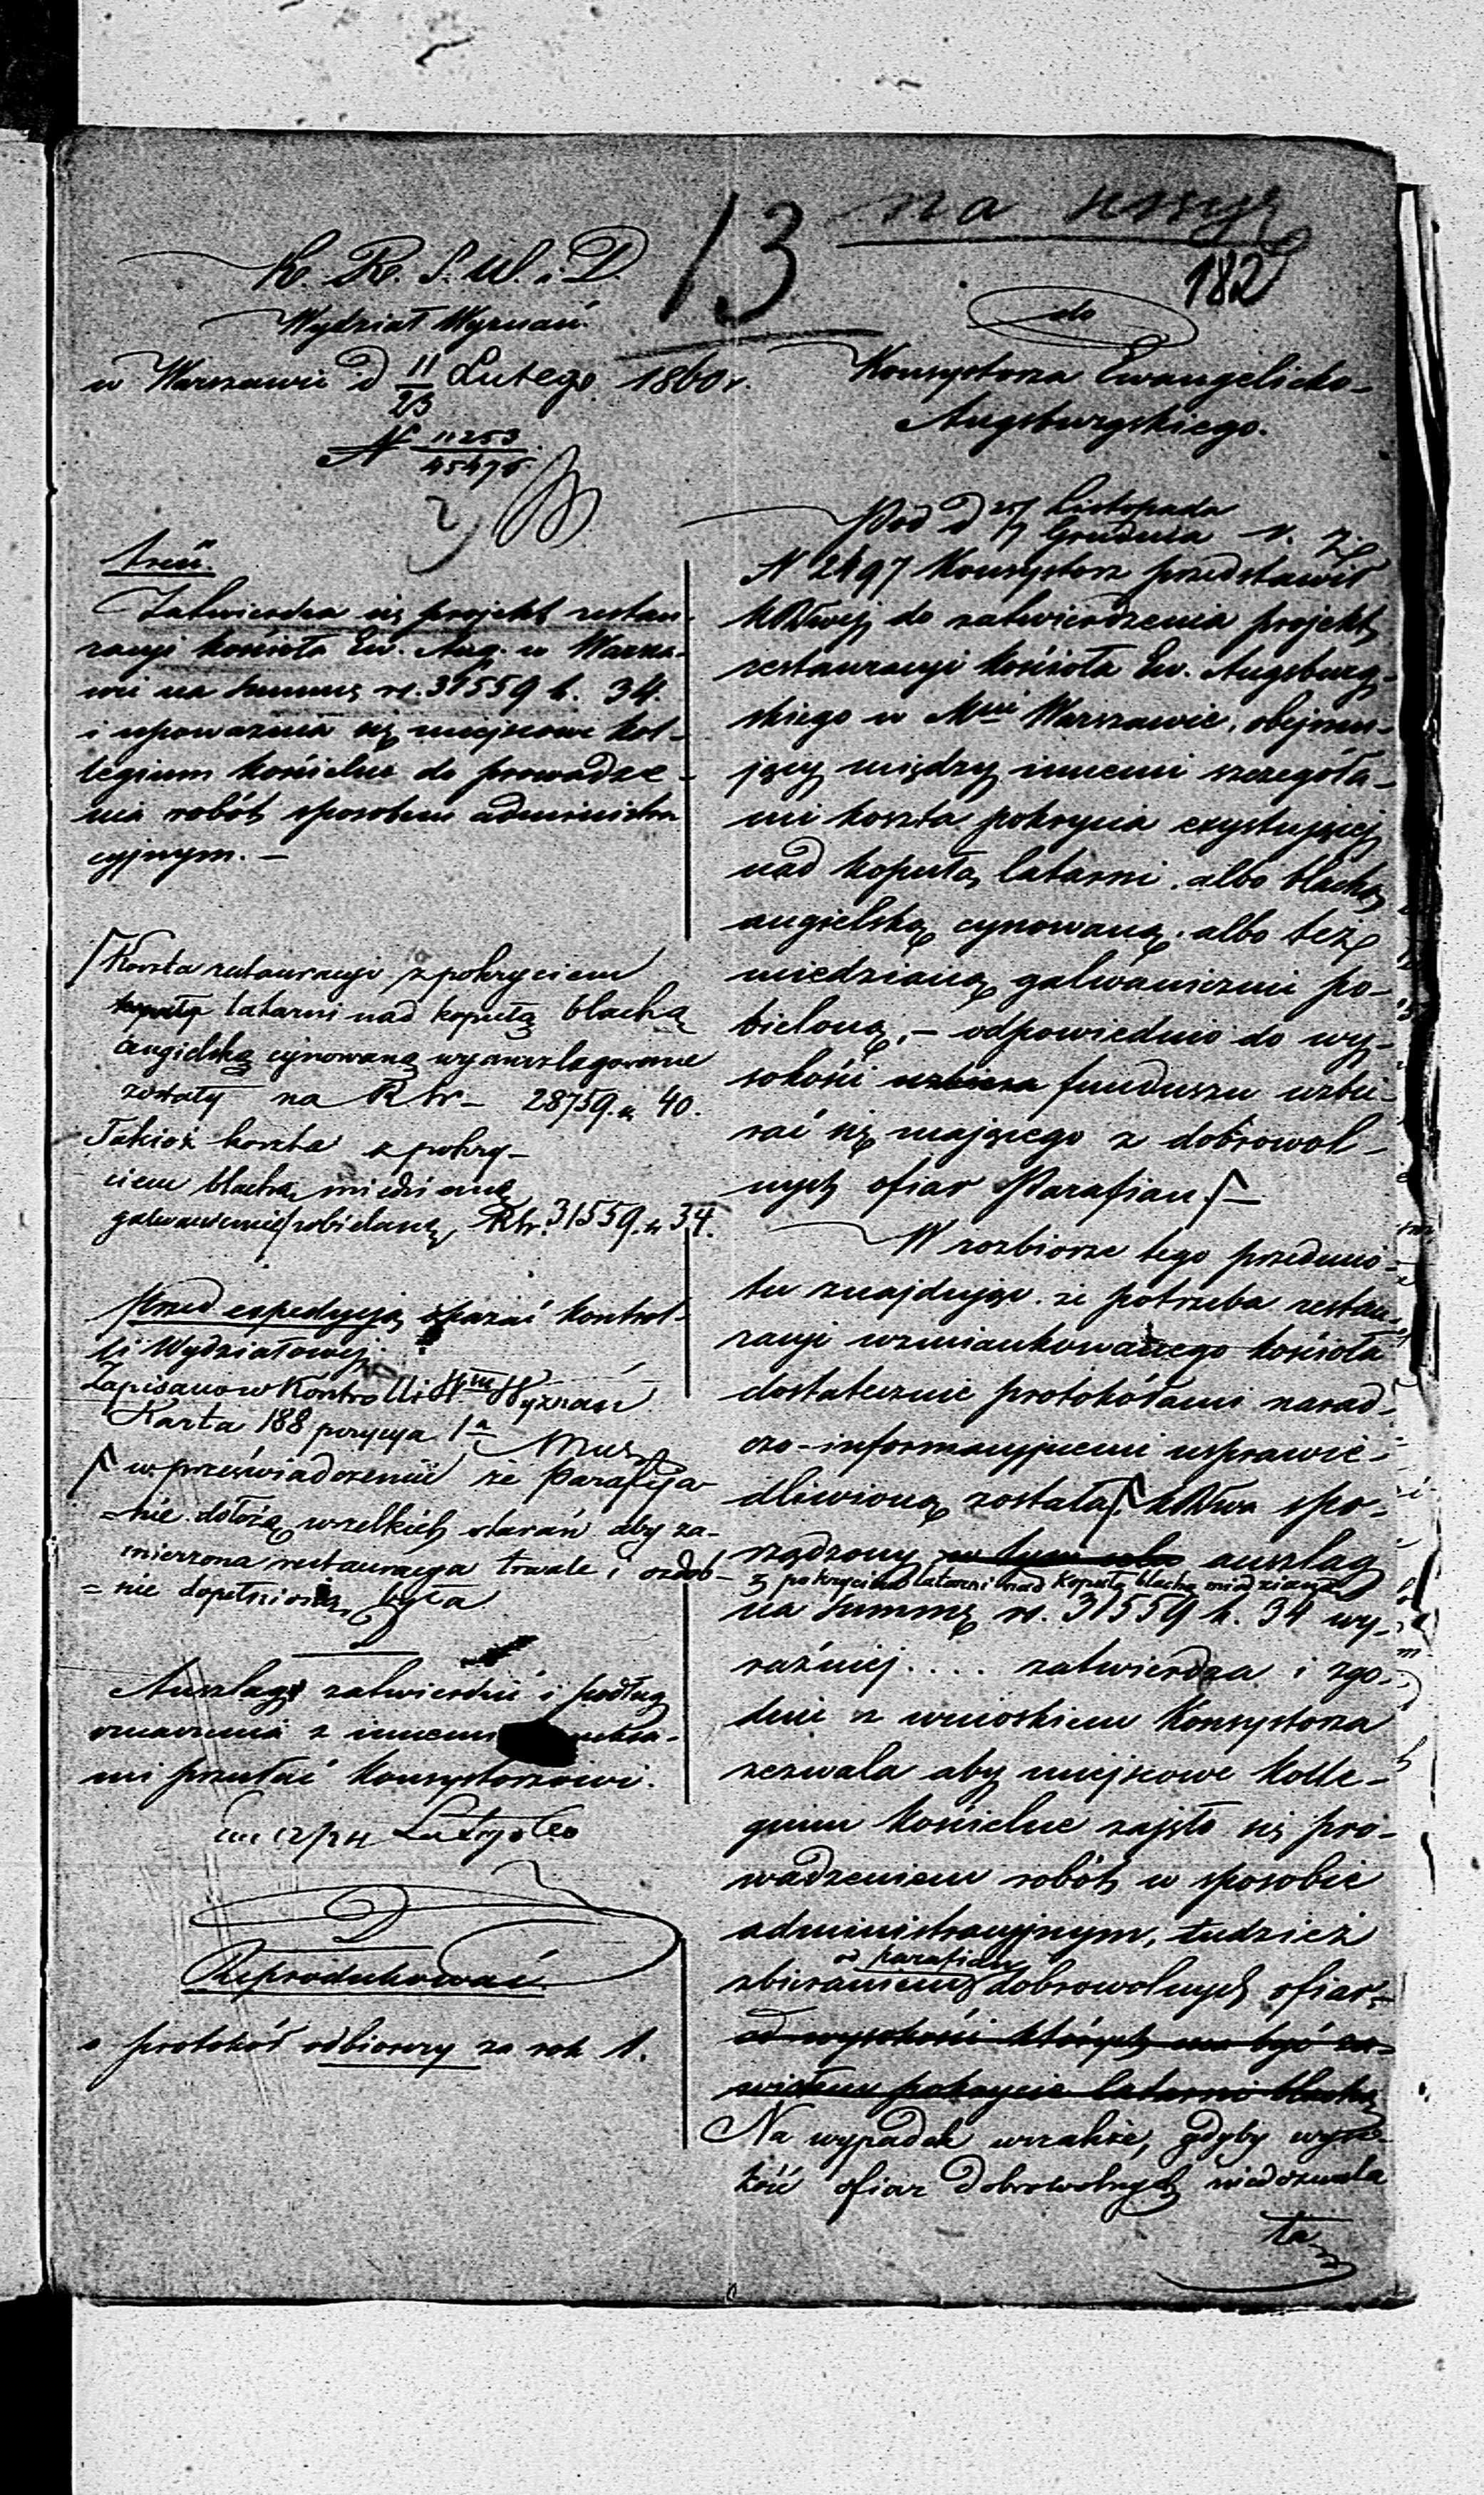 13 na
182
K. R. S. W. i D.
Wydział Wyznań.
w Warszawie d 11/23 Lutego 1860 r.
N 11253/45476
treść.
Zatwierdza się projekt restau-
racyi kościoła Ew. Aug. w Warsza-
wie na summę rs. 31559 k. 34.
i upoważnia się miejscowe kol-
legium kościelne do prowadze-
nia robót sposobem administra
cyjnym. —
Koszta restauracyi z pokryciem
kopuły latarni nad kopułą blachą
angielską cynowaną wyanszlagowane
zostały na Rsr — 28759. k 40.
Takież koszta z pokry-
ciem blachą miedzianą
galwanicznie pobielaną, Rsr. 31559. k 34.
Przed expedycyą okazać kontrol-
li Wydziałowej.
Zapisano w Kontrolli Wyznań
Karta 188 pozycya 1a
w przeświadczeniu że Parafija-
=nie dołożą wszelkich starań aby za-
mierzona restauracya trwale i ozdob-
=nie dopełnioną była
Anszlag zatwierdzić i podług
oznaczenia z innemi
mi przesłać Konsystorzowi.
dn 12/24 Lutego 60
Reprodukować
o protokół odbiorczy za rok 1.
do
Konsystorza Ewangelicko-
Augsburgskiego.
Pod d 25/7 Listopada/Grudnia r. z.
N 2497 Konsystorz przedstawił
KRSwej do zatwierdzenia projekt
restauracyi kościoła Ew. Augsburg-
skiego w Mcie Warszawie, obejmu-
jący między innemi szczegóła-
mi koszta pokrycia exystującej
nad kopułą latarni, albo blachą
angielską cynowaną, albo też
miedzianą galwanicznie po-
bieloną, — odpowiednio do wy-
sokości uzbiera funduszu uzbie-
rać się mającego z dobrowol-
nych ofiar Parafian. —
W rozbiorze tego przedmio-
tu znajdując, że potrzeba restau-
racyi wzmiankowanego kościoła
dostatecznie protokółami narad-
czo-informacyjnemi usprawie-
dliwioną została, KRSwa spo-
rządzony w tym celu anszlag
z pokryciem latarni nad kopułą blachą miedzianą
na summę rs. 31559 k. 34 wy-
raźniej .... zatwierdza i zgo-
dnie z wnioskiem Konsystorza
zezwala aby miejscowe Kolle-
gium Kościelne zajęło się pro-
wadzeniem robót w sposobie
administracyjnym, tudzież
od parafian
zbieraniem dobrowolnych ofiar,
od wysokości których ma być za-
wisłem pokrycie latarni blachą
Na wypadek wszakże, gdyby wyso-
kość ofiar dobrowolnych niedozwala
ła